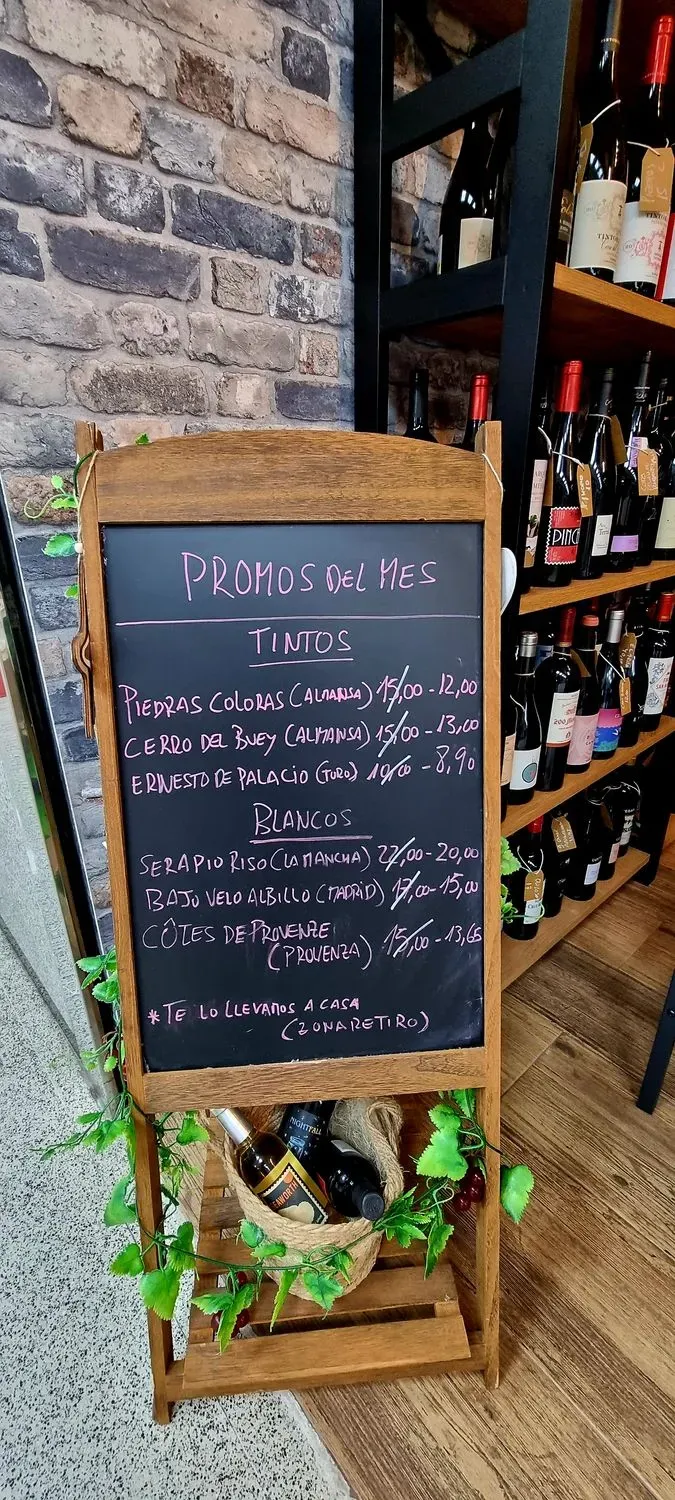 PROMOS DEL MES
TINTOS
PIEDRAS COLORAS (ALMANSA) 15,00 - 12,00
CERRO DEL BUEY (ALMANSA) 15,00 - 13,00
ERNESTO DE PALACIO (TORO) 10,00 - 8,90
BLANCOS
SERAPIO RISO (LA MANCHA) 22,00 - 20,00
BAJO VELO ALBILLO (MADRID) 17,00 - 15,00
CÔTES DE PROVENZE
(PROVENZA) 15,00 - 13,65
*TE LO LLEVAMOS A CASA
(ZONA RETIRO)
NIGHTFALL
TINTO
PINC